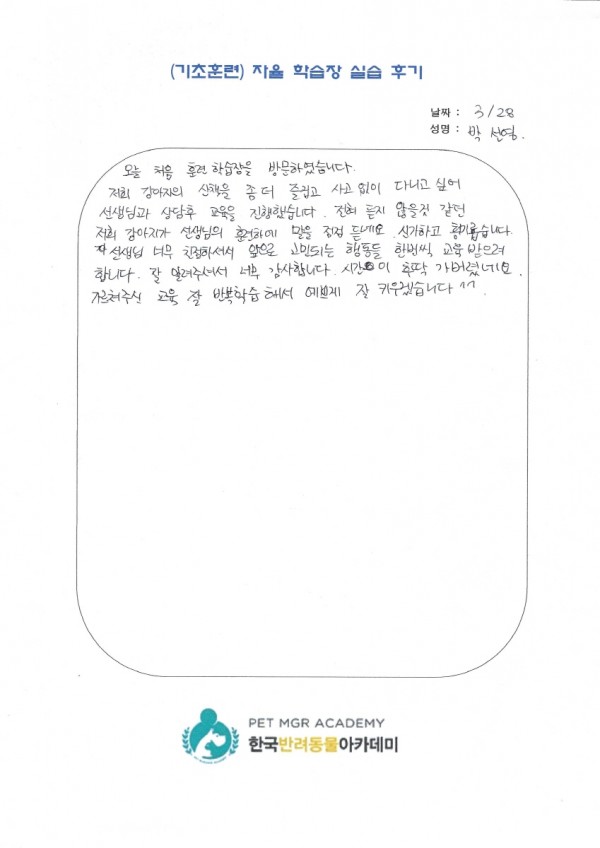 (기초훈련) 자율 학습장 실습 후기
날짜 : 3/28
성명 : 박 선영.
오늘 처음 훈련 학습장을 방문하였습니다.
저희 강아지의 산책을 좀 더 즐겁고 사고 없이 다니고 싶어
선생님과 상담후 교육을 진행했습니다. 전혀 듣지 않을것 같던
저희 강아지가 선생님의 훈련하에 말을 점점 듣네요. 신기하고 흥미롭습니다.
선생님 너무 친절하셔서 앞으로 고민되는 행동들 한번씩 교육 받으려
합니다. 잘 알려주셔서 너무 감사합니다. 시간이 후딱 가버렸네요.
가르쳐주신 교육 잘 반복학습해서 예쁘게 잘 키우겠습니다 ^^.
PET MGR ACADEMY
한국반려동물아카데미